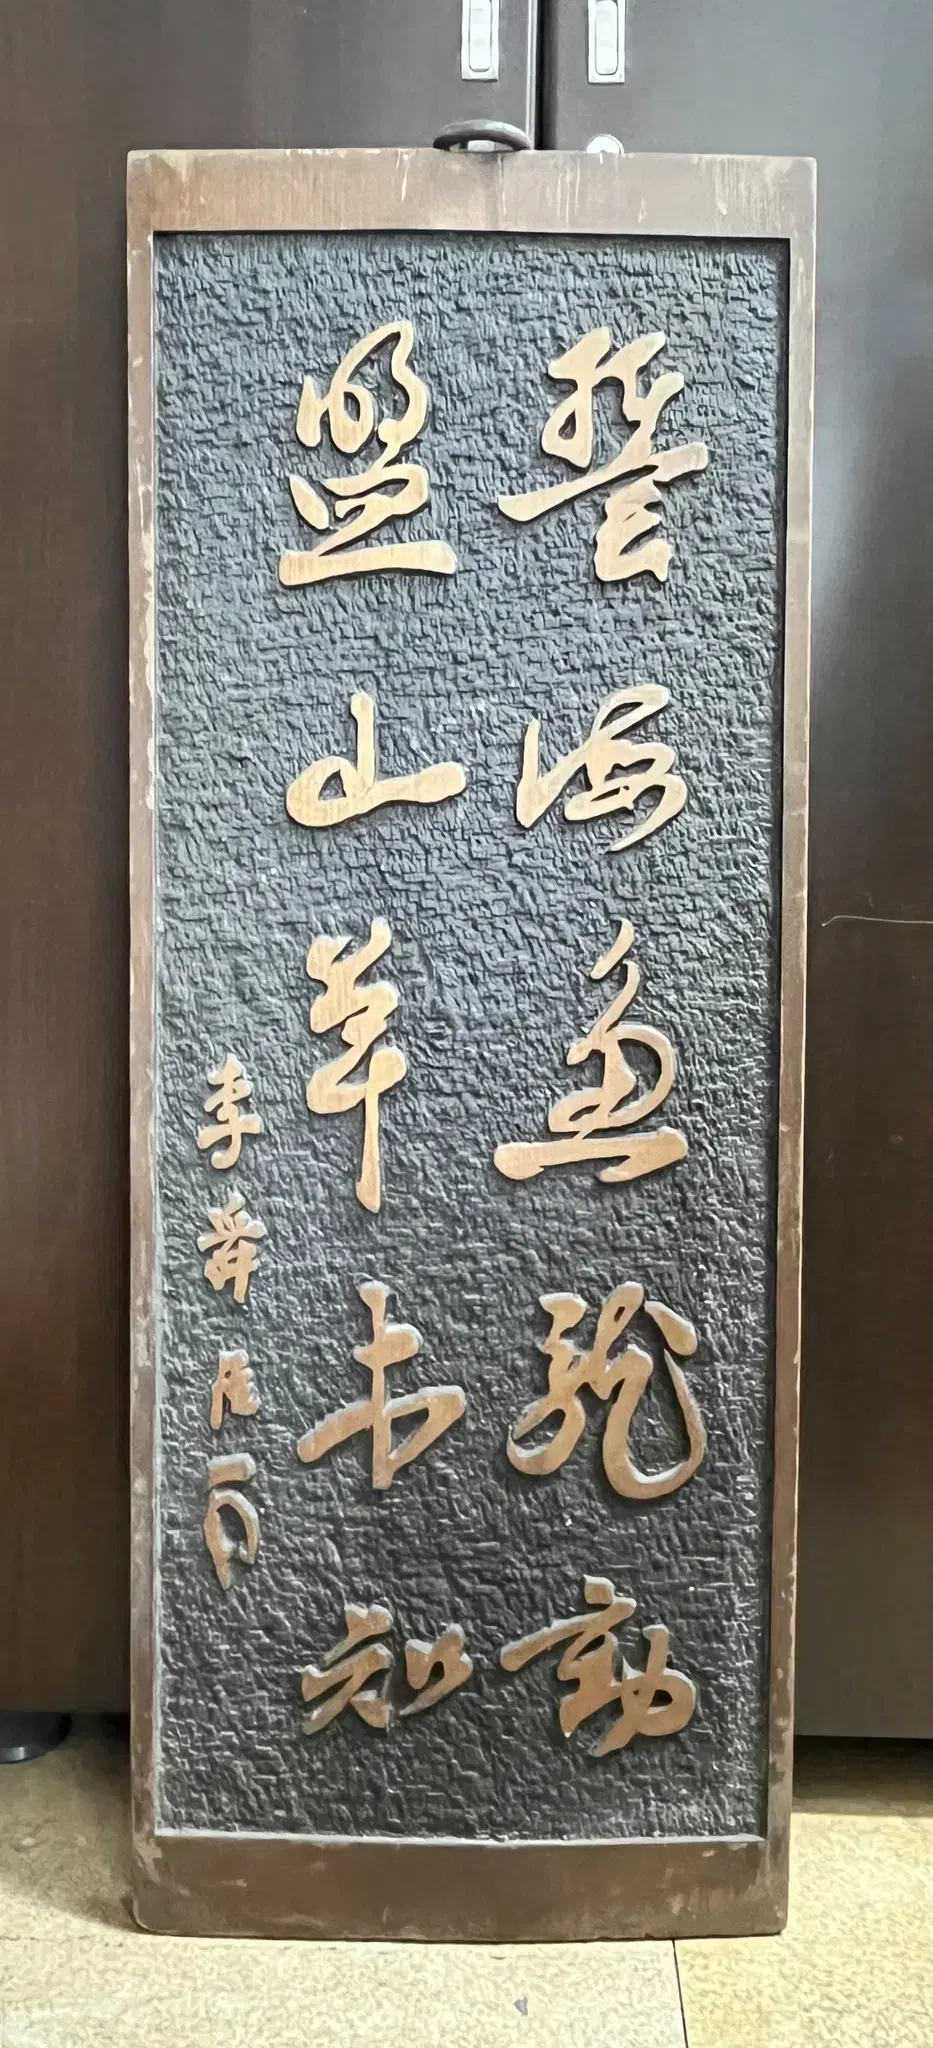 誓海魚龍動
盟山草木知
李舜臣